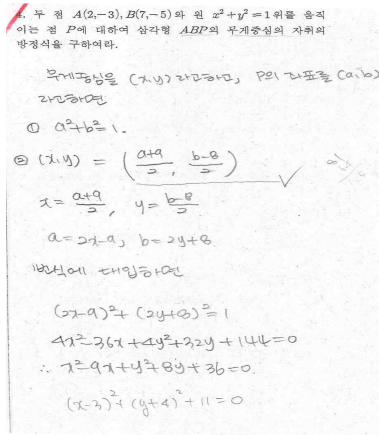 4. 두 점 A(2,-3), B(7,-5)와 원 x²+y²=1위를 움직
이는 점 P에 대하여 삼각형 ABP의 무게중심의 자취의
방정식을 구하여라.
무게중심을 (x,y)라고하고, P의 좌표를 (a,b)
라고하면
① a²+b²=1.
② (x,y) = (a+9/2, b-8/2)
x= a+9/2, y= b-8/2
a=2x-9, b=2y+8
1번식에 대입하면
(2x-9)²+(2y+8)²=1
4x²-36x+4y²+32y+144=0
∴ x²-9x+y²+8y+36=0.
(x-3)²+(y+4)²+11=0